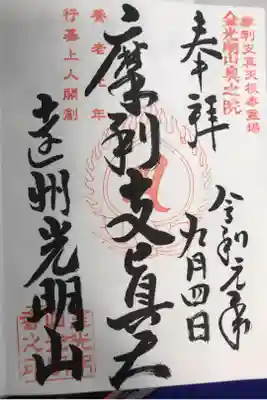 摩利支真天根本霊場
金光明山奥之院
奉拝
令和元年
九月四日
摩利支眞天
養老元年
行基上人開創
遠州光明山